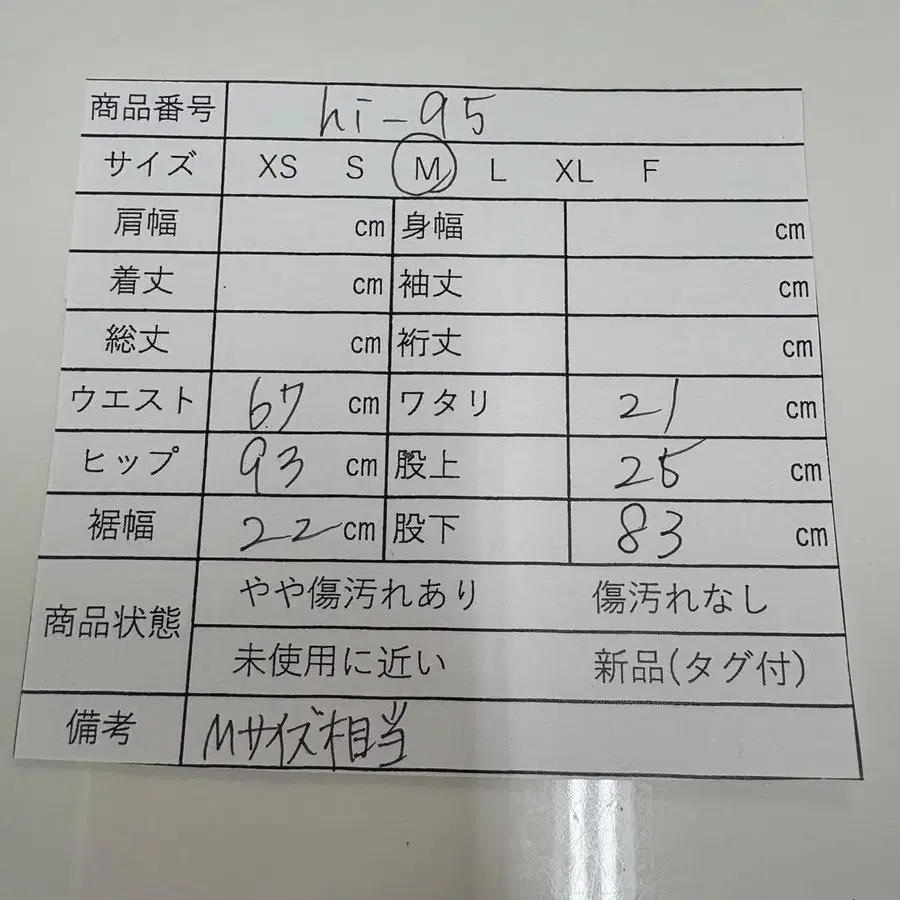 商品番号 hi-95
サイズ XS S M L XL F
肩幅 cm 身幅 cm
着丈 cm 袖丈 cm
総丈 cm 裄丈 cm
ウエスト 67 cm ワタリ 21 cm
ヒップ 93 cm 股上 25 cm
裾幅 22 cm 股下 83 cm
商品状態 やや傷汚れあり 傷汚れなし
未使用に近い 新品(タグ付)
備考 Mサイズ相当